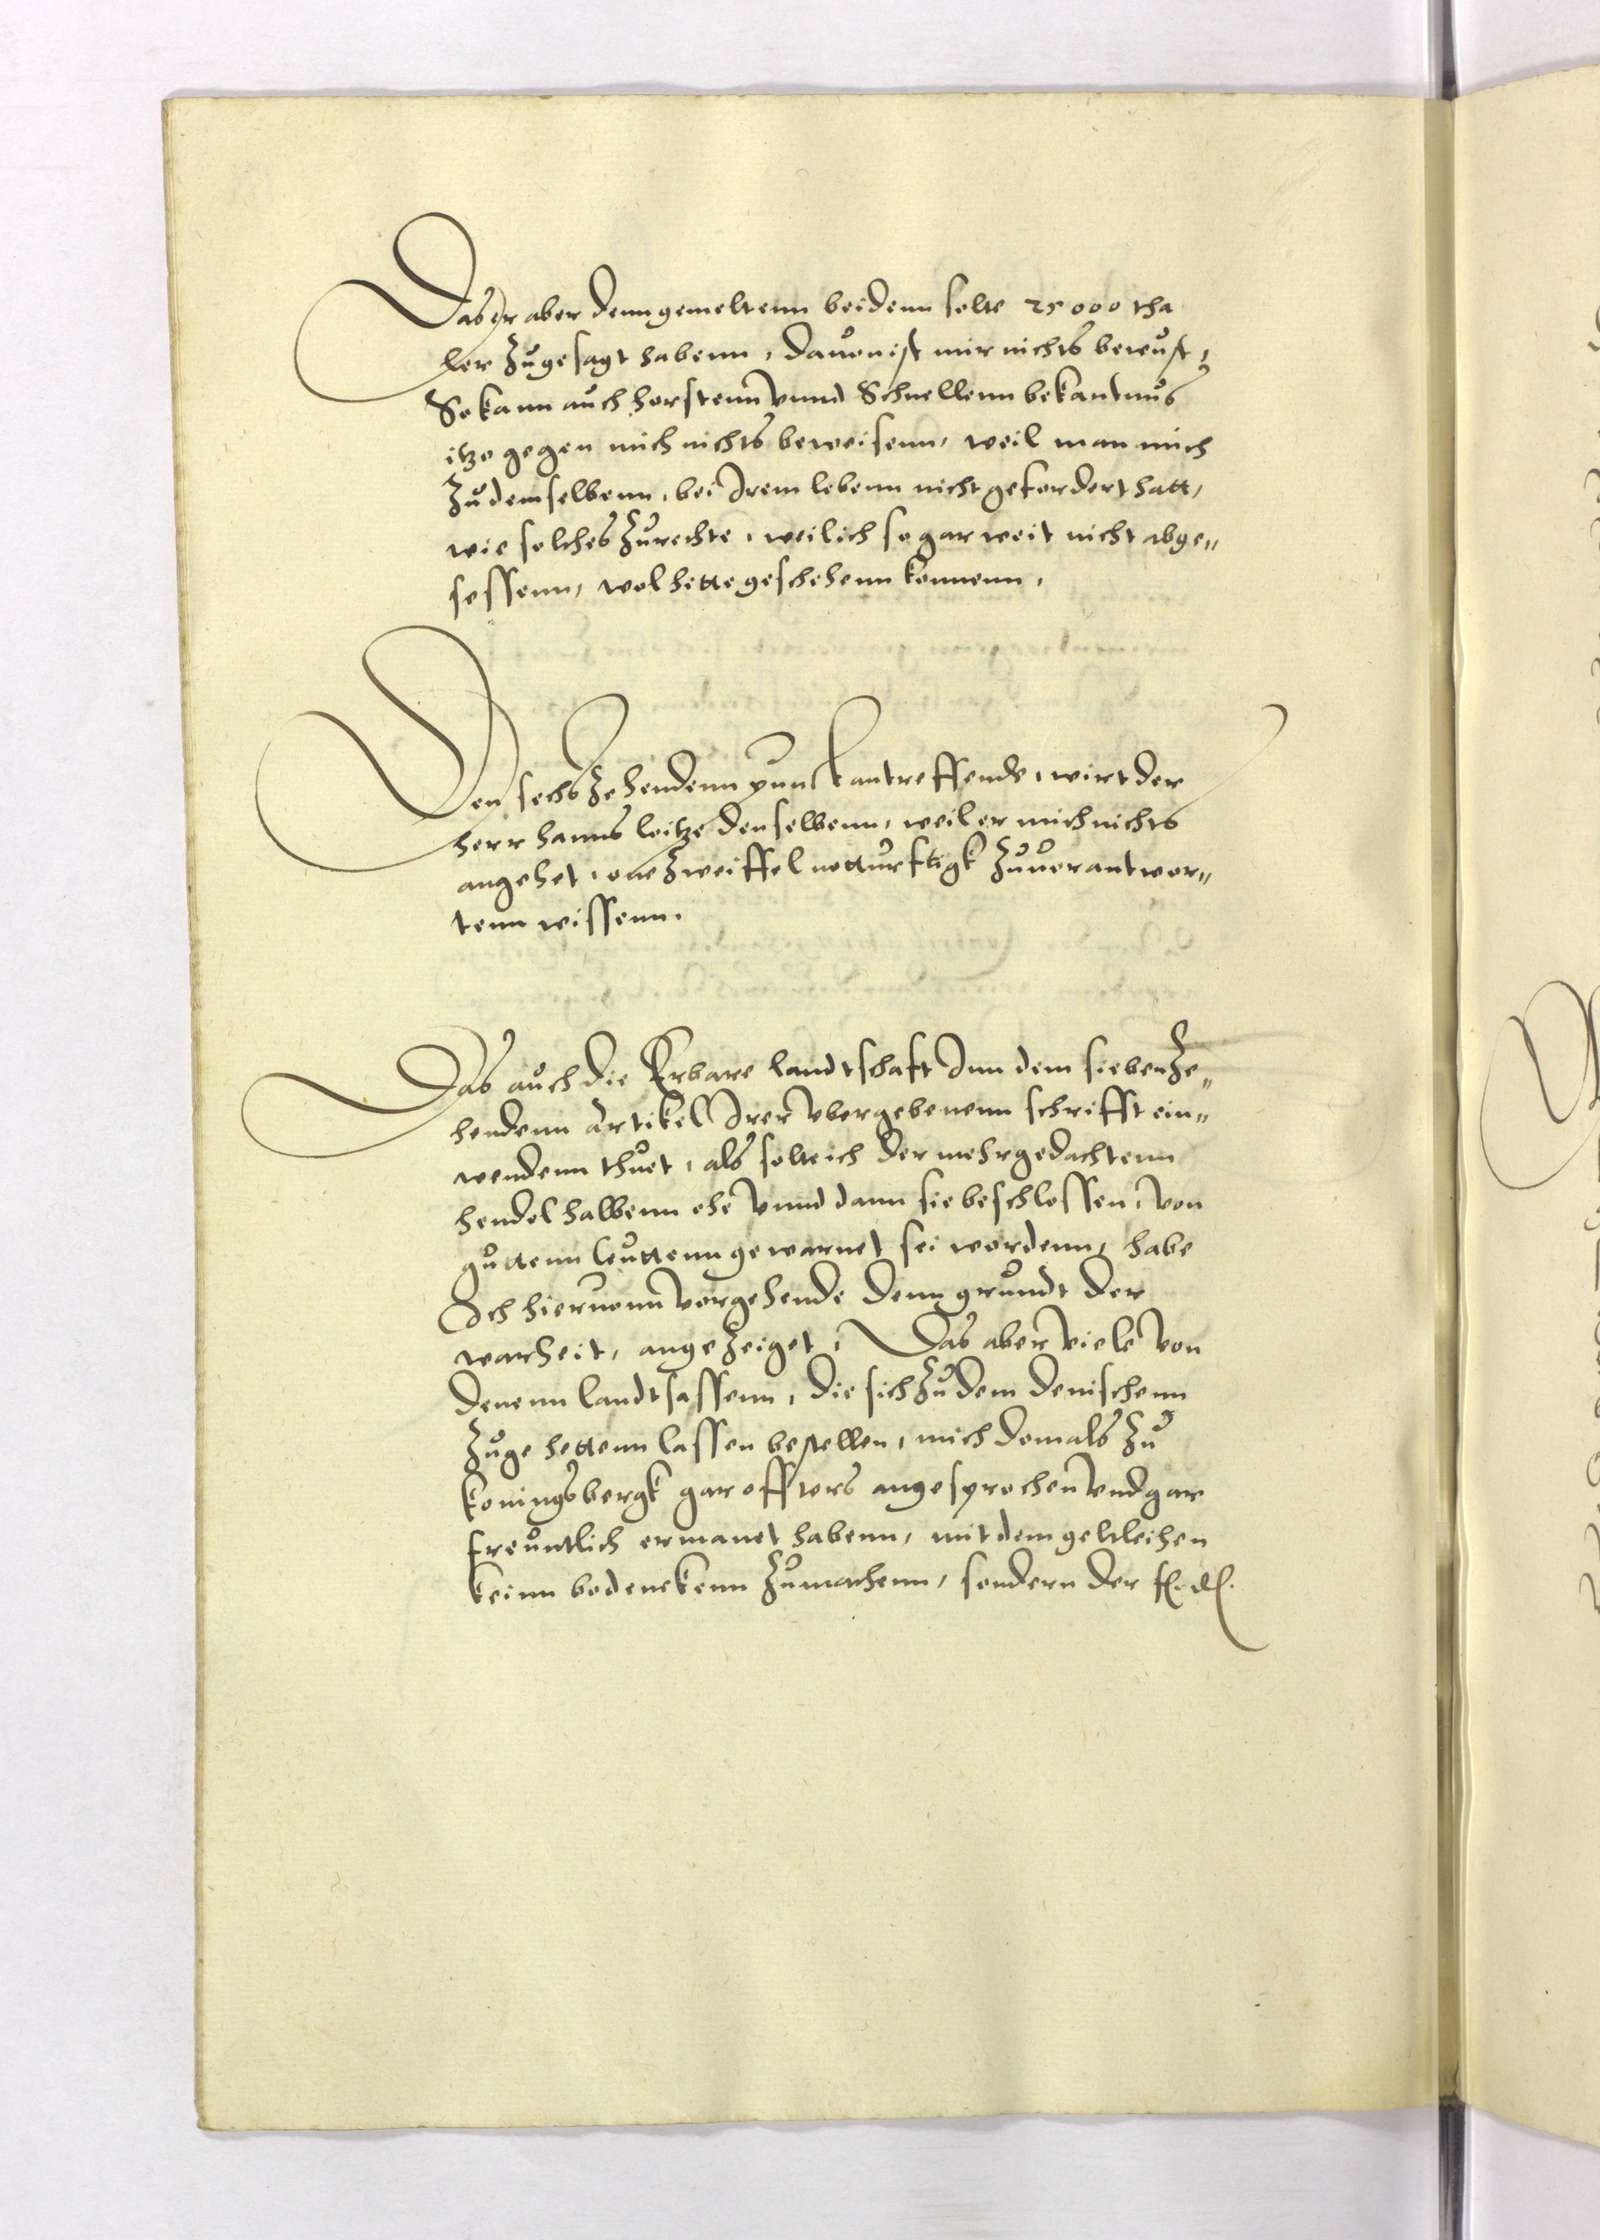 Das er aber denn gemeltenn beidenn solte 25000 tha
ler zugesagt habenn, dauon ist mir nichts bewust,
So kann auch horstenn vnnd Schnellenn bekantnus
itzo gegen mich nichts beweisenn, weil man mich
zu demselbenn, bei Irem lebenn nicht gefordert hatt,
wie solches zurechte, weil ich so gar weit nicht abge„
sessenn, wol hette geschehenn konnenn,
Den sechszehendenn punckt antreffende, wirt der
herr hanns leitze denselbenn, weil er mich nichts
angehet, one zweiffel notturfftigk zuuerantwor„
tenn wissenn.
Das auch die Erbare landtschaft Inn dem siebenze„
hendenn artikel Irer vbergebenenn schrifft ein„
wendenn thuet, als solte ich der mehrgedachtenn
hendel halbenn ehe vnnd dann sie beschlossen, von
guttenn leuttenn gewarnet sei wordenn, habe
Ich hieruonn vorgehende denn grundt der
warheit, angezeiget, Das aber viele von
denenn landtsassenn, die sich zu dem denischenn
zuge hettenn lassen bestellen, mich domals zu
koningsbergk gar offters angesprochen vnd gar
freuntlich ermanet habenn, mit dem geltleihen
keinn bedenckenn zumachenn, sondern der f. d.